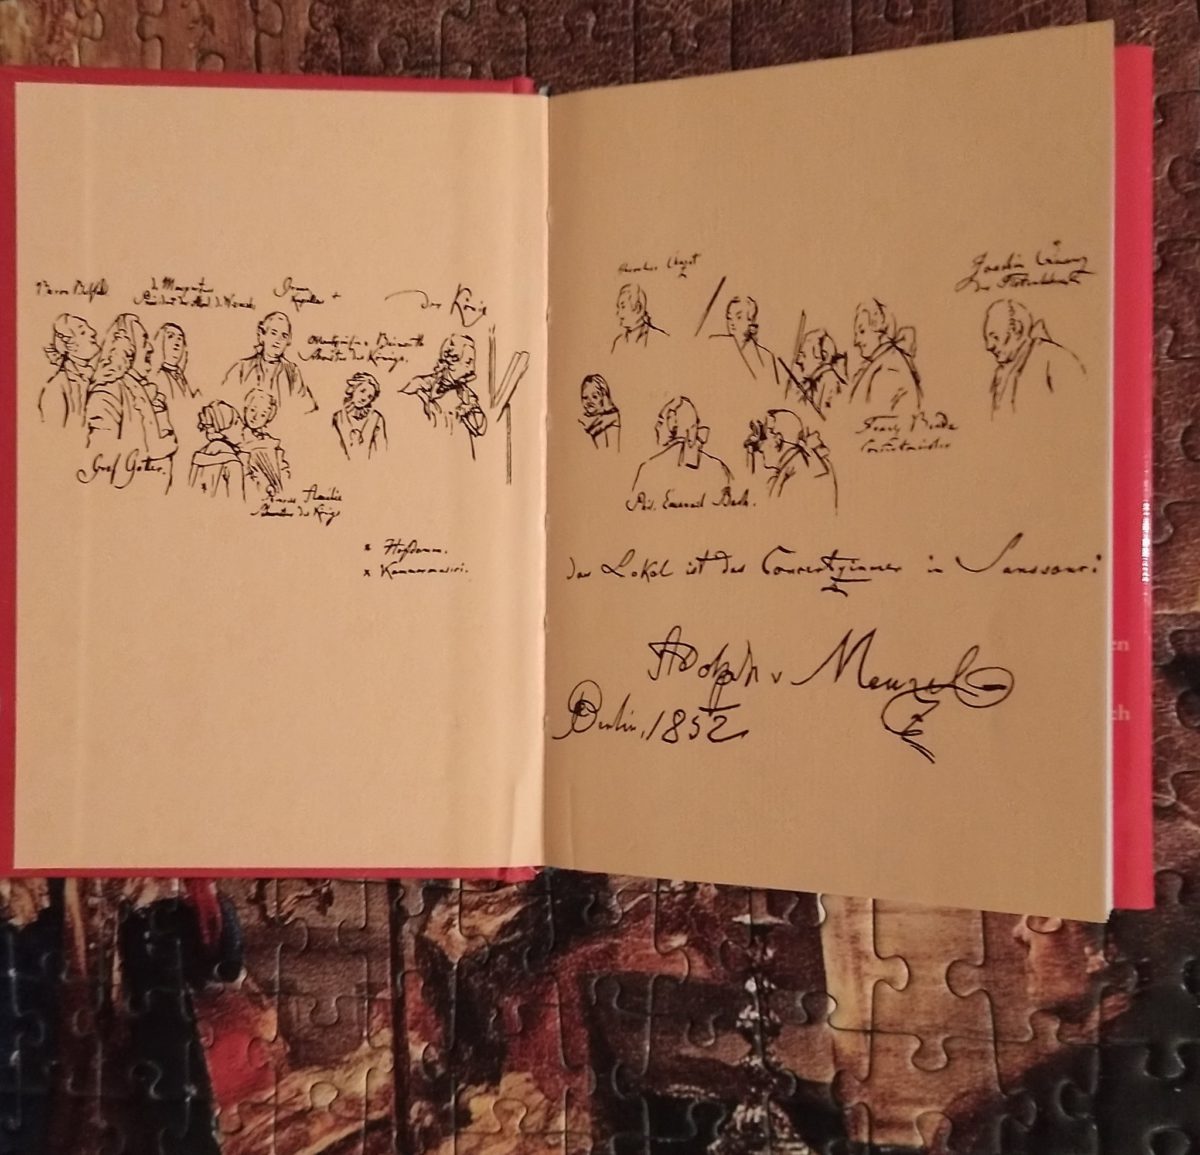 Baron Bilfeld
de Maupertuis
President der Akad. d. Wissensch.
Graun
Kapellm
+
Der König
Markgräfin v. Baireuth
Schwester des Königs.
Graf Gotter.
Princess Amalie
Schwester des Königs
x Hofdamen.
x Kammermusici.
Chevalier Chazot
Joachim Quanz
der Flötenlehrer
Franz Benda
Concertmeister
Phil. Emanuel Bach.
das Lokal ist das Concertzimmer in Sanssouci
Adolph v Menzel
Berlin, 1852
en
ch